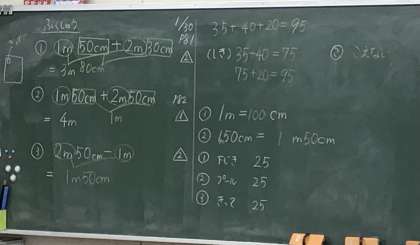 ふくしゅう
① 1m50cm+2m30cm
= 3m80cm
② 1m50cm+2m50cm
= 4m 1m
③ 2m50cm-1m
= 1m50cm
1/30
P81
P82
35+40+20=95
35+40=75
75+20=95
① 1m=100cm
② 650cm= 1 m50cm
① テレビ 25
② プール 25
③ 25